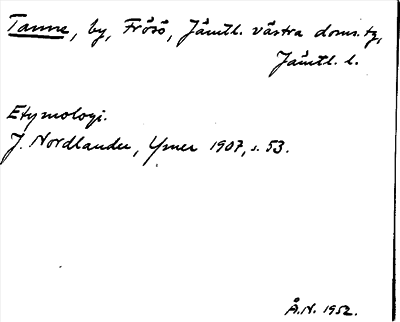 Tanne, by, Frösö, Jämtl. västra doms.tg,
Jämtl. l.
Etymologi.
J. Nordlander, Ymer 1907, s. 53.
Å.N. 1952.